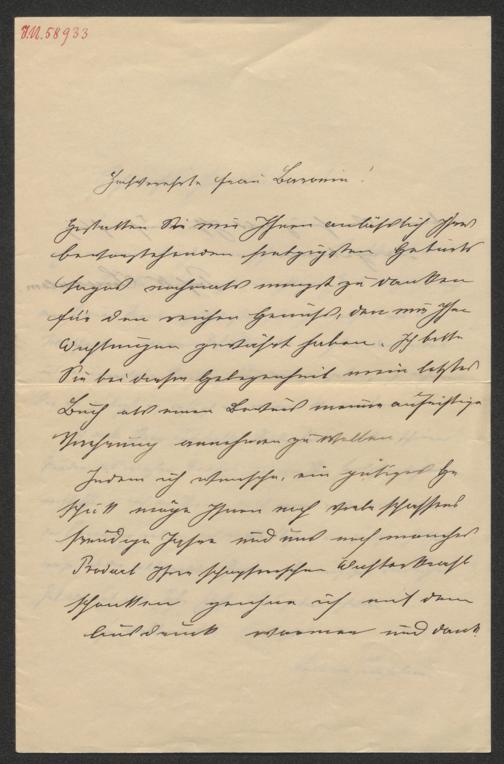 J.N. 58933
Hochverehrte Frau Baronin!
Gestatten Sie mir Ihnen anläßlich Ihres
bevorstehenden siebzigsten Geburts
tages nochmals innigst zu danken
für den reichen Genuß, den mir Ihre
Dichtungen gewährt haben. Ich bitte
Sie bei dieser Gelegenheit mein letztes
Buch als einen Beweis meiner aufrichtigen
Verehrung annehmen zu wollen.
Indem ich wünsche, ein gütiges Ge
schick möge Ihnen noch viele schaffens
freudige Jahre und uns noch manches
Product Ihrer schöpferischen Dichterkraft
schenken zeichne ich mit dem
Ausdruck warmer und dank